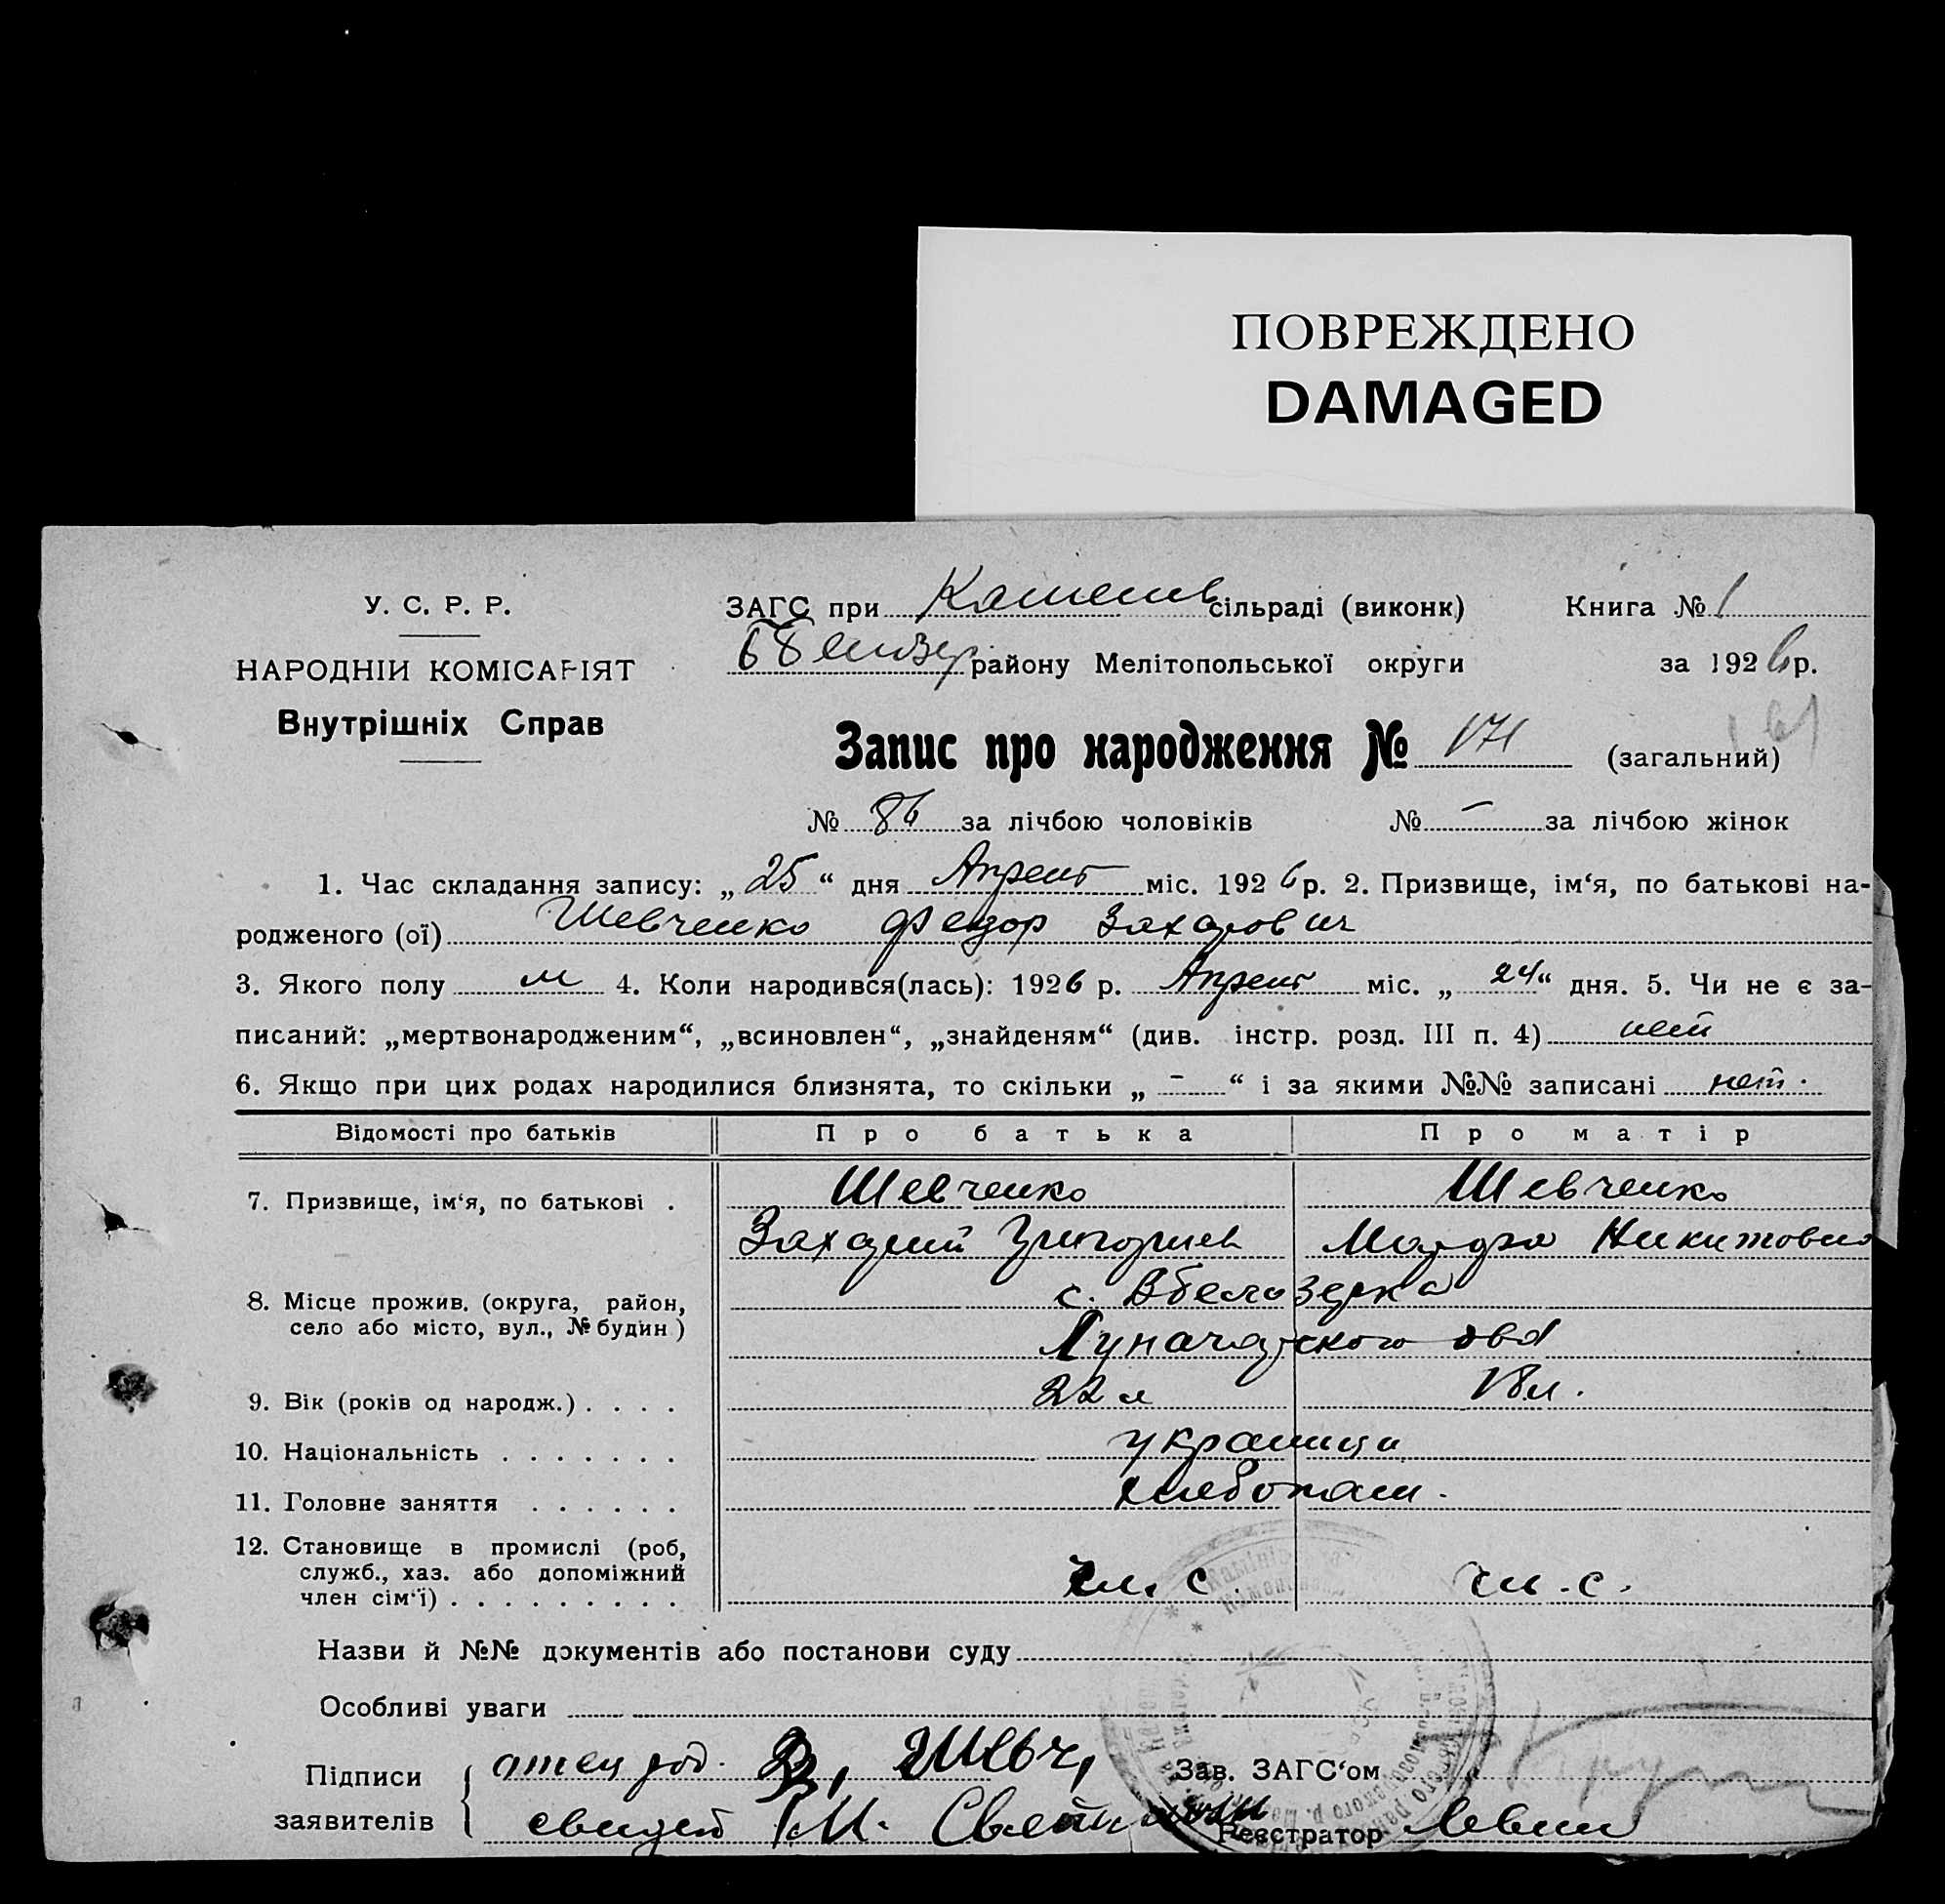 ПОВРЕЖДЕНО
DAMAGED
У. С. Р. Р.
НАРОДНІЙ КОМІСАРІЯТ
Внутрішніх Справ
ЗАГС при Каменск сільраді (виконк) Книга № 1
ВБелозер району Мелітопольської округи за 1926 р.
Запис про народження № 171 (загальний)
№ 86 за лічбою чоловіків № – за лічбою жінок
1. Час складання запису: „25“ дня Апреля міс. 1926 р. 2. Призвище, ім‘я, по батькові на-
родженого (ої) Шевченко Федор Захарович
3. Якого полу м 4. Коли народився(лась): 1926 р. Апреля міс. „24“ дня. 5. Чи не є за-
писаний: „мертвонародженим“, „всиновлен“, „знайденям“ (див. інстр. розд. III п. 4) нет
6. Якщо при цих родах народилися близнята, то скільки „–“ і за якими №№ записані нет.
Відомості про батьків Про батька Про матір
7. Призвище, ім‘я, по батькові . Шевченко Шевченко
Захарий Григориев Марфа Никитовна
8. Місце прожив. (округа, район, с. Вбелозерка
село або місто, вул., № будин)
9. Вік (років од народж.) . . . . 22 л 18 л.
10. Національність . . . . . . . украинци
11. Головне заняття . . . . . . хлебопаш.
12. Становище в промислі (роб,
служб., хаз. або допоміжний
член сім‘ї) . . . . . . . . . чл. с. чл. с.
Назви й №№ документів або постанови суду
Особливі уваги
Підписи отец З. Шевч, Зав. ЗАГС‘ом
заявителів свидет Реєстратор